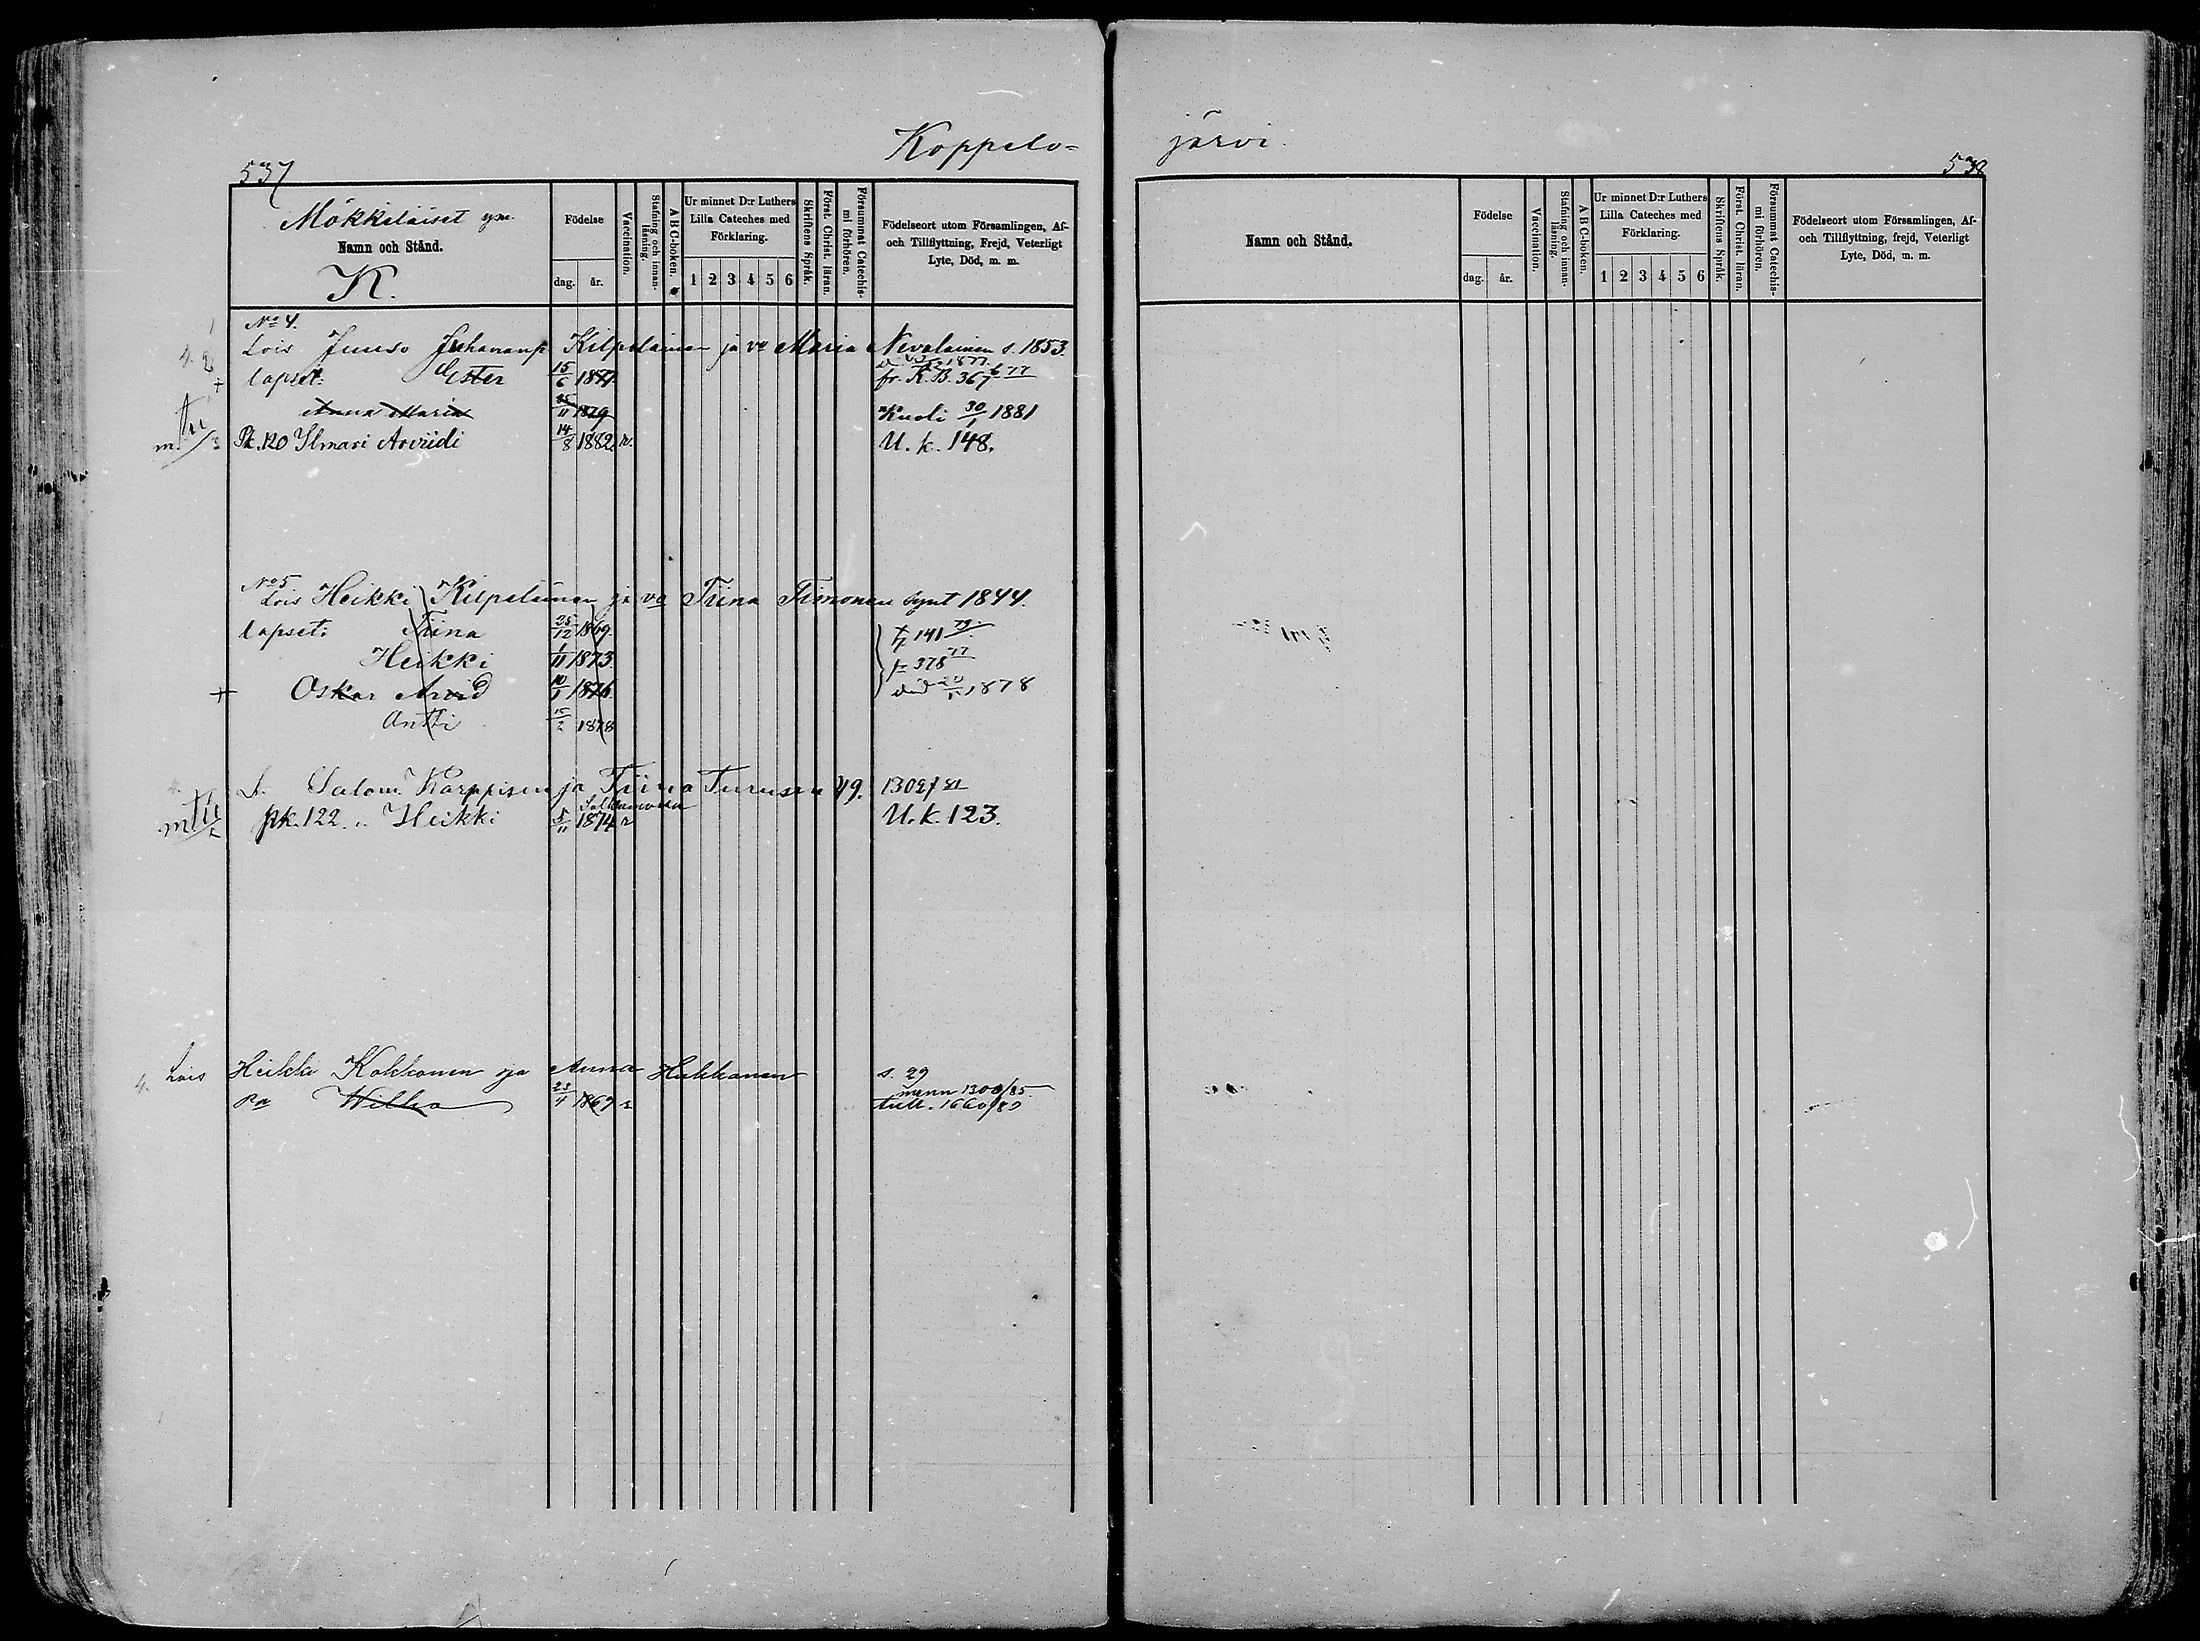 Koppelo=
järvi.
537
538
Mökkeläiset ym.
Namn och Stånd.
K.
Födelse
dag. år.
Vaccination.
Stafning och innanläsning.
A B C-boken.
Ur minnet D:r Luthers Lilla Cateches med Förklaring.
1 2 3 4 5 6
Skriftens Språk.
Först. Christ. läran.
Försummat Catechismi förhören.
Födelseort utom Församlingen, Af- och Tillflyttning, Frejd, Veterligt Lyte, Död, m. m.
Namn och Stånd.
Födelse
dag. år.
Vaccination.
Stafning och innanläsning.
A B C-boken.
Ur minnet D:r Luthers Lilla Cateches med Förklaring.
1 2 3 4 5 6
Skriftens Språk.
Först. Christ. läran.
Försummat Catechismi förhören.
Födelseort utom Församlingen, Af- och Tillflyttning, frejd, Veterligt Lyte, Död, m. m.
No 4.
Lois Juuso Juhananp. Kilpeläinen ja vo Maria Nevalainen s. 1853.
lapset: Ester 15/6 1877 fr. K.B. 367 77
Anna Maria 25/11 1879 Kuoli 30/1 1881
Pk. 120 Ilmari Arviidi 14/8 1882 r. U. k. 148.
No 5
Lois Heikki Kilpeläinen ja vo Tiina Timonen synt 1844.
lapset: Tiina 25/12 1869. 141 79
Heikki 1/11 1873. 378 77
+ Oskar Arvid 10/1 1876. död 1878
Antti 15/2 1878
L. Salom. Karppisen ja Tiina Turusen 49. 1302/81
Sotkamosta
pk. 122. Heikki 5/11 1874 r U. k. 123.
4. Lois Heikki Kokkonen ja Anna Hukkanen s. 29
menn 1300/85
Pa Wilho 23/4 1869 r tull. 1660/87